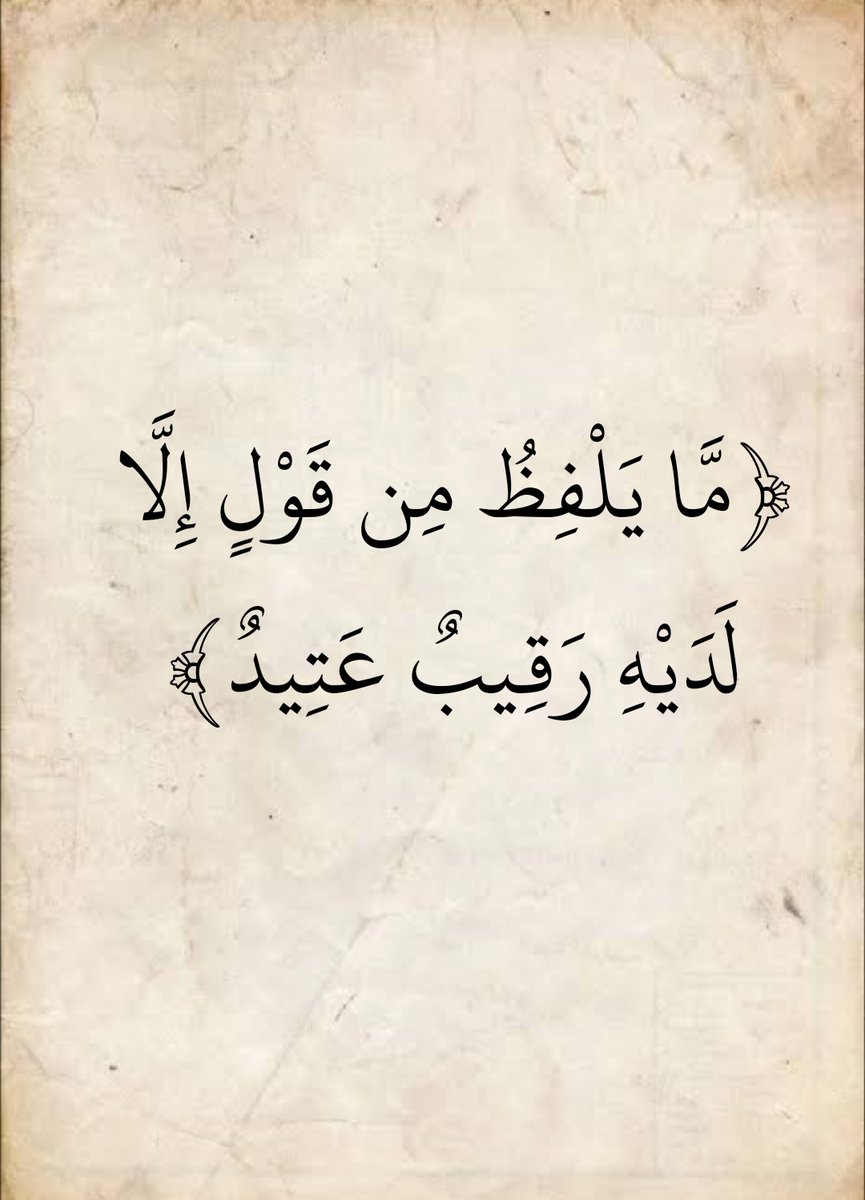 ﴿مَّا يَلْفِظُ مِن قَوْلٍ إِلَّا
لَدَيْهِ رَقِيبٌ عَتِيدٌ﴾